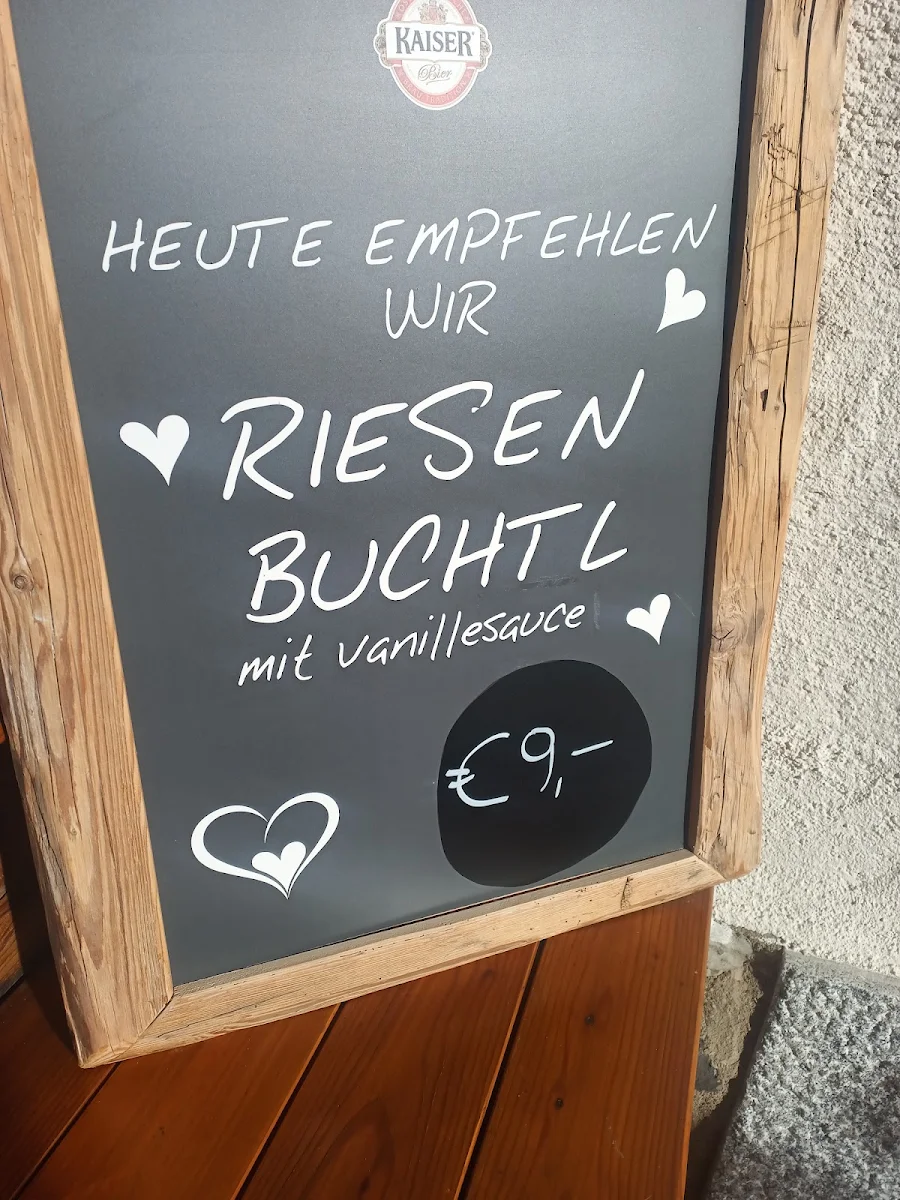 KAISER
Bier
HEUTE EMPFEHLEN
WIR
RIESEN
BUCHTL
mit vanillesauce
€ 9,-